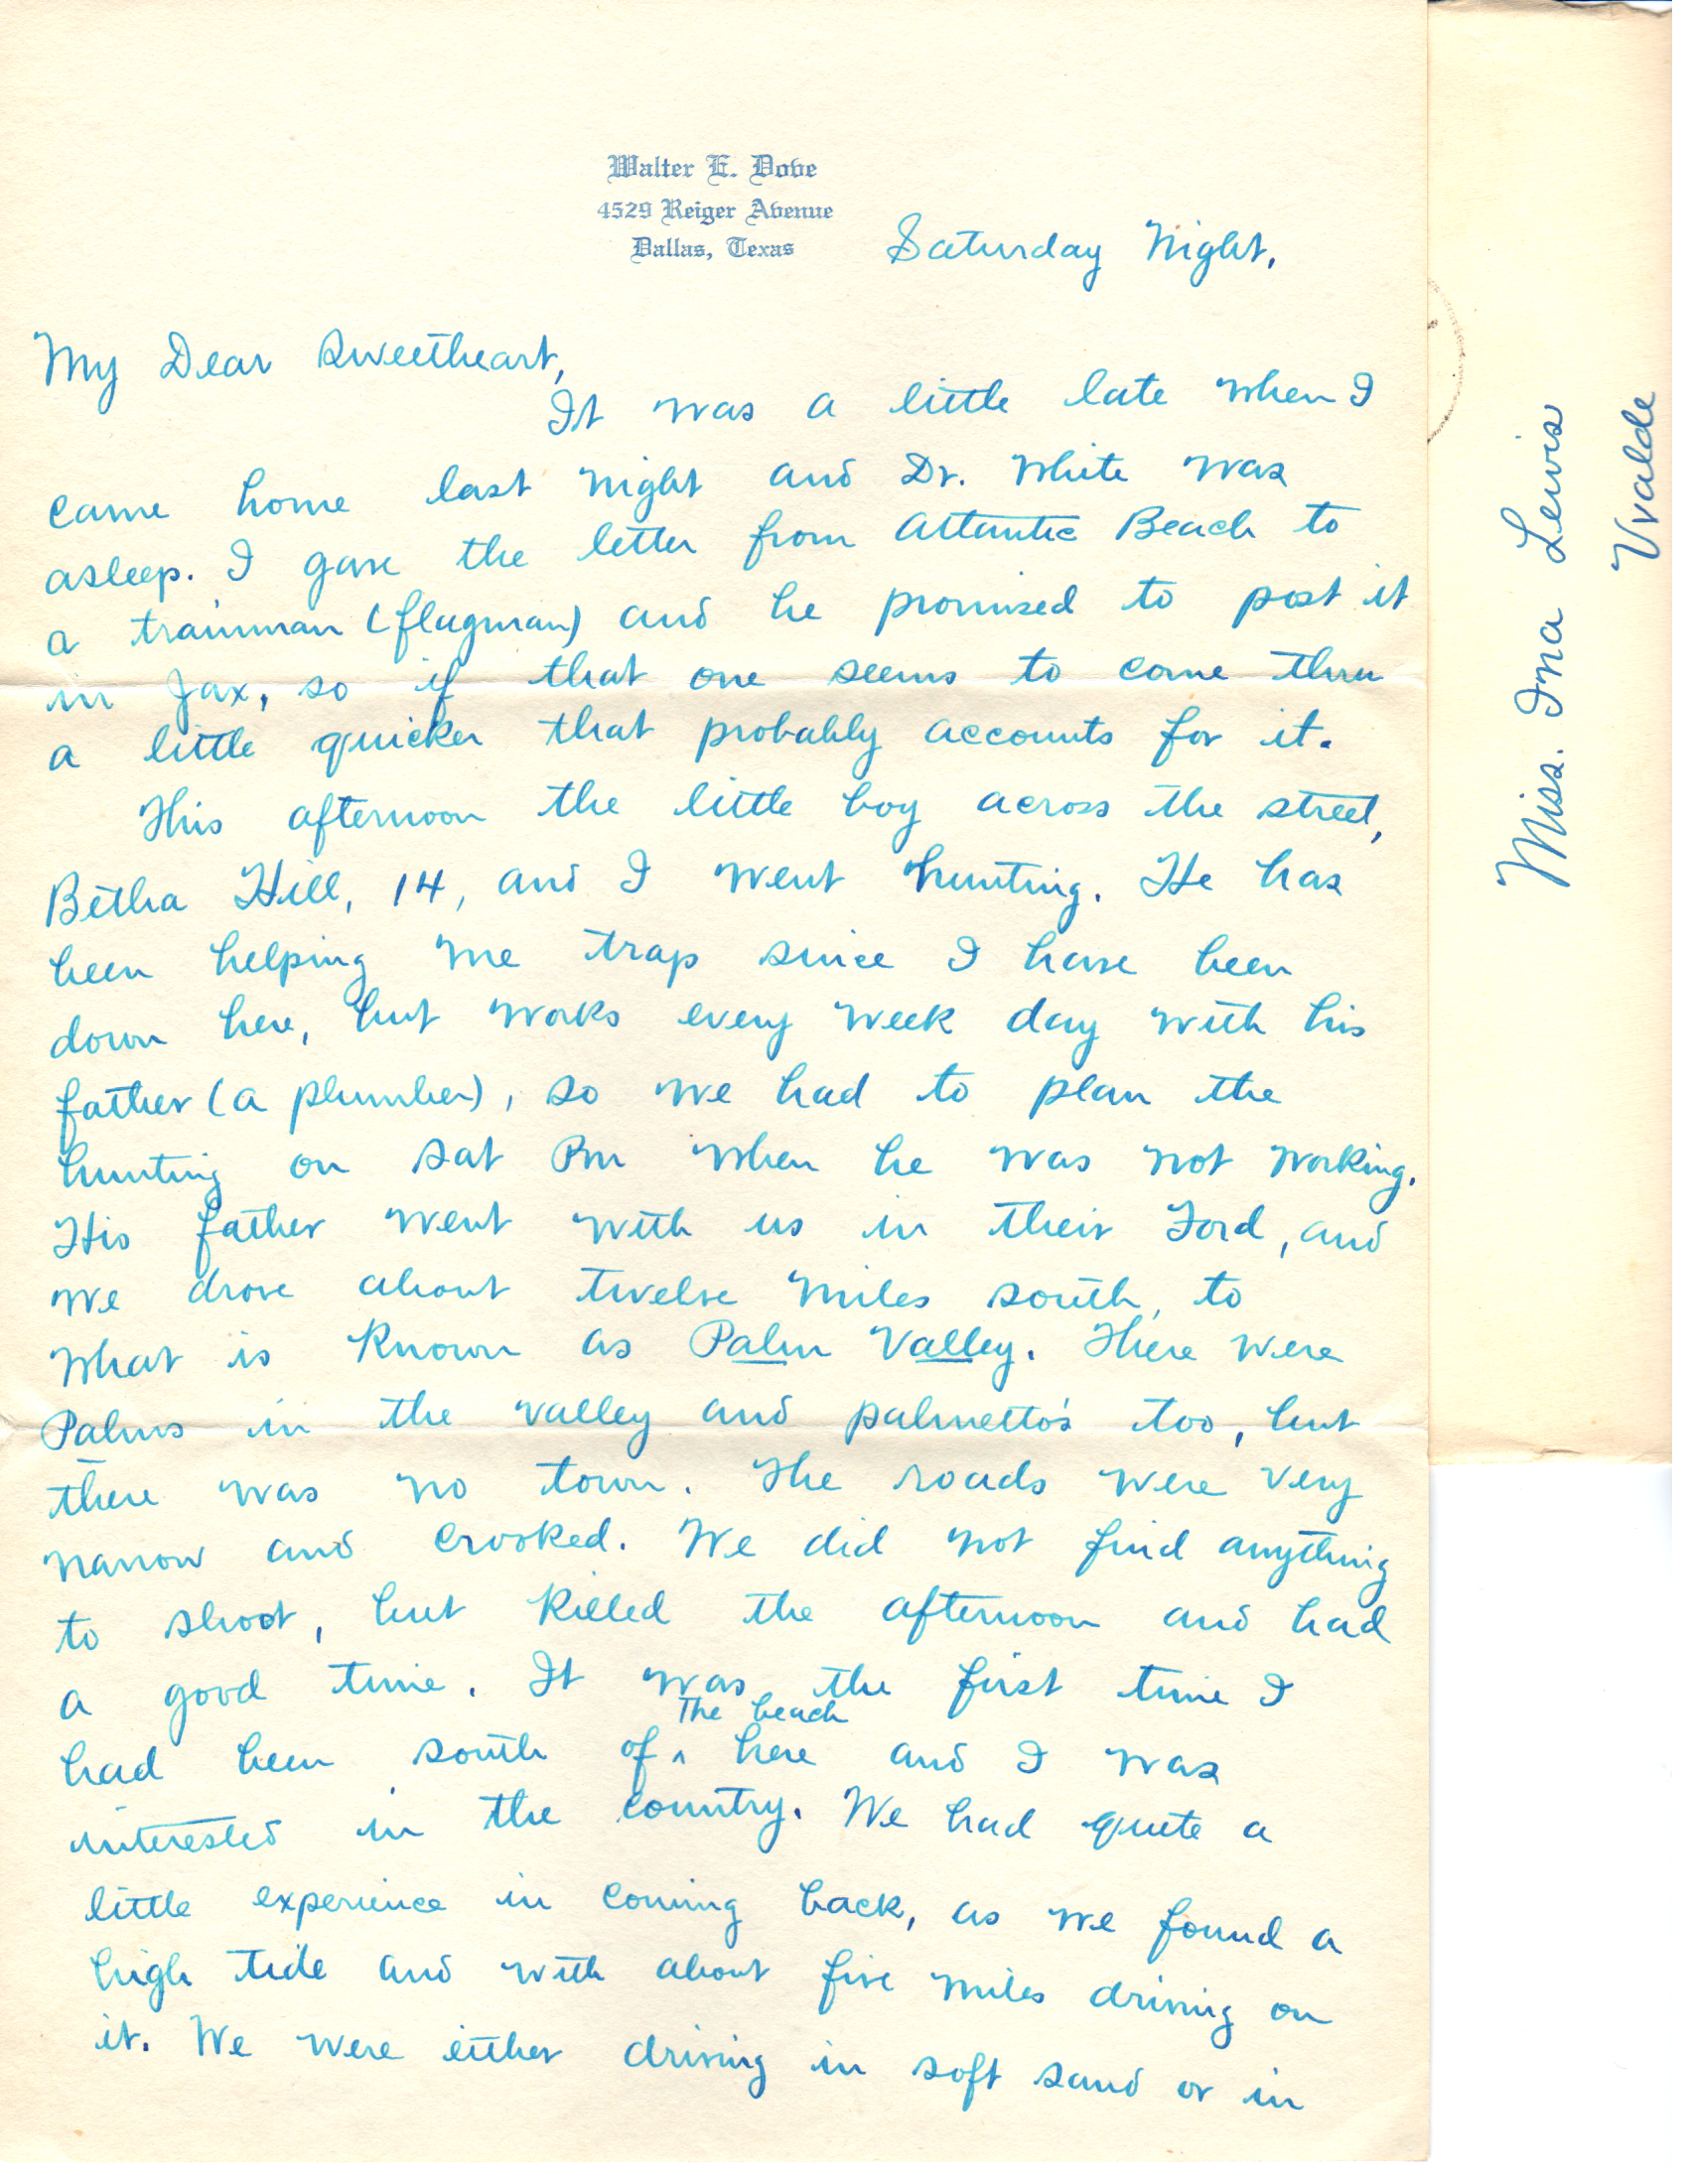 Walter E. Dove
4529 Reiger Avenue
Dallas, Texas
Saturday Night,
My Dear Sweetheart,
It was a little late when I
came home last night and Dr. White was
asleep. I gave the letter from Atlantic Beach to
a trainman (flagman) and he promised to post it
in Jax, so if that one seems to come thru
a little quicker that probably accounts for it.
This afternoon the little boy across the street,
Betha Hill, 14, and I went hunting. He has
been helping me trap since I have been
down here, but works every week day with his
father (a plumber), so we had to plan the
hunting on Sat Pm when he was not working.
His father went with us in their Ford, and
we drove about twelve miles south, to
what is known as Palm Valley. There were
Palms in the valley and palmetto's too, but
there was no town. The roads were very
narrow and crooked. We did not find anything
to shoot, but killed the afternoon and had
a good time. It was the first time I
The beach
had been south of ^ here and I was
interested in the country. We had quite a
little experience in coming back, as we found a
high tide and with about five miles driving on
it. We were either driving in soft sand or in
Miss. Ina Lewis
Uvalde